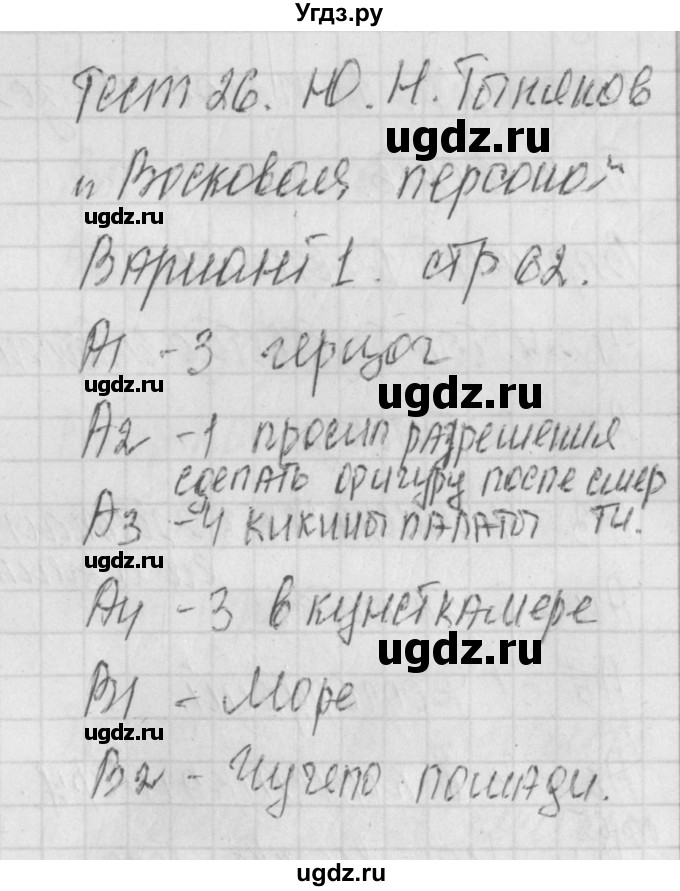 Угдз.ру
Тест 26. Ю. Н. Тынянов
ugdz.ru
"Восковая персона"
ugdz.ru
Вариант 1. стр 62.
ugdz.ru
А1 - 3 герцог
ugdz.ru
ugdz.ru
А2 - 1 просил разрешения
сделать фигуру после смер
ти.
ugdz.ru
А3 - 4 кикины палаты
ugdz.ru
А4 - 3 в кунсткамере
ugdz.ru
В1 - Море
ugdz.ru
В2 - Чучело лошади.
ugdz.ru
ugdz.ru